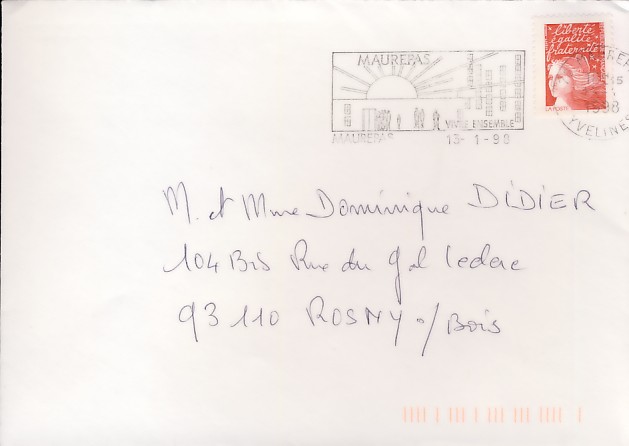 MAUREPAS
VIVRE ENSEMBLE
MAUREPAS 13-1-98
liberté
égalité
fraternité
LA POSTE
1998
YVELINES
M. et Mme Dominique DIDIER
104 Bis Rue du Gal Leclerc
93 110 ROSNY s/Bois